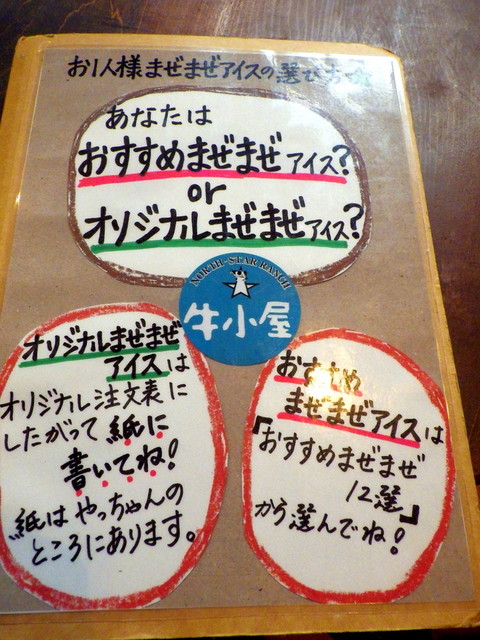 お1人様まぜまぜアイスの選び方
あなたは
おすすめまぜまぜアイス?
or
オリジナルまぜまぜアイス?
NORTH-STAR RANCH
牛小屋
オリジナルまぜまぜ
アイスは
オリジナル注文表に
したがって紙に
書いてね!
紙はやっちゃんの
ところにあります。
おすすめ
まぜまぜアイスは
『おすすめまぜまぜ
12選』
から選んでね!